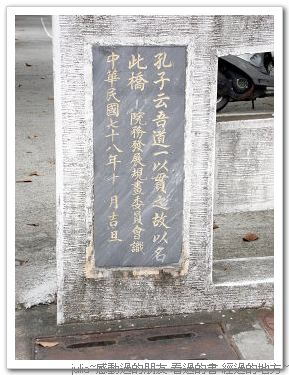 孔子云吾道一以貫之故以名
此橋 — 院務發展規畫委員會識
中華民國七十八年十月吉旦
julia~感動過的朋友 看過的書 經過的地方~